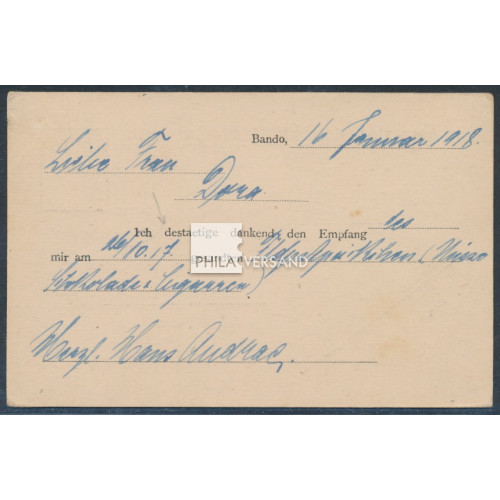 Bando, 16 Januar 1918.
Liebe Frau
Dora
Ich destaetige dankend, den Empfang des
mir am 26/10.17
PHILA VERSAND
Schokolade + Cigarren)
Herzl. Hans Andrae.